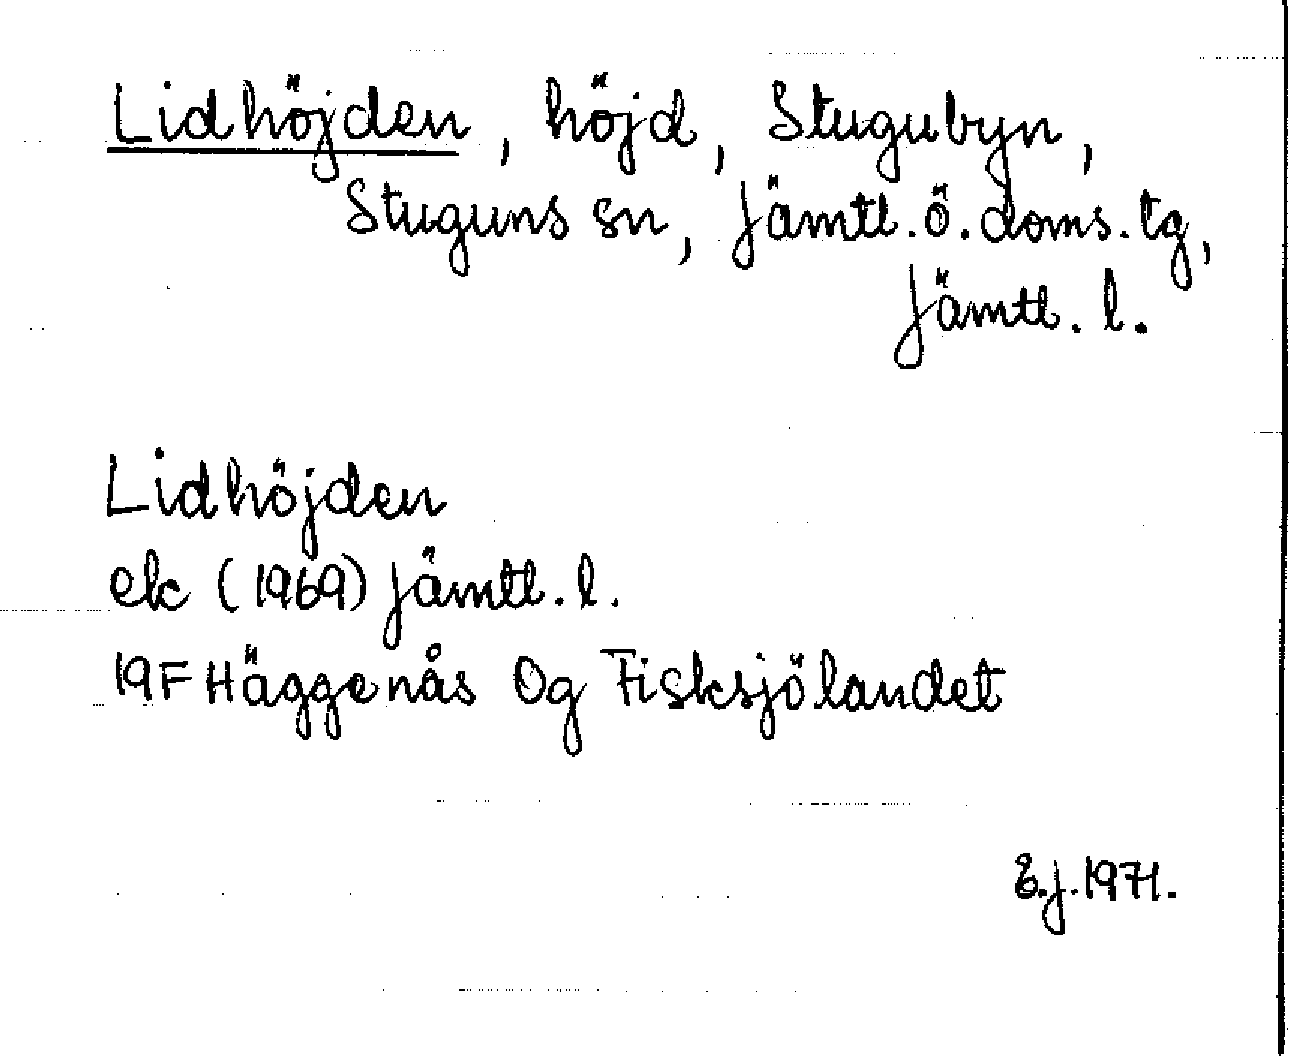 Lidhöjden, höjd, Stugubyn,
Stuguns sn, Jämtl. ö. doms. tg,
Jämtl. l.
Lidhöjden
ek (1969) Jämtl. l.
19F Häggenås 0g Fisksjölandet
E.J. 1971.